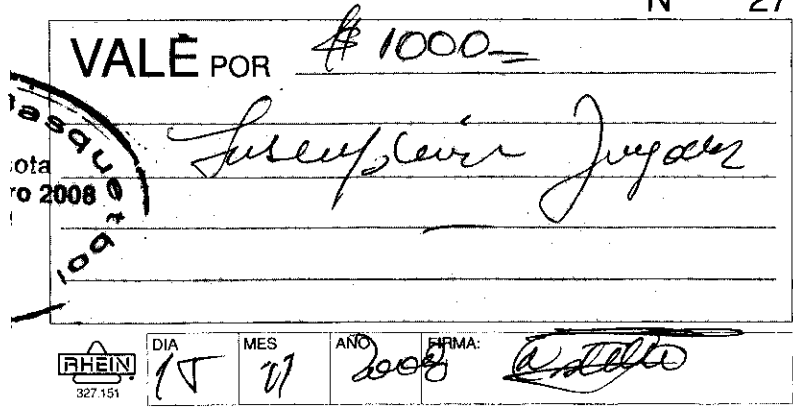 Nº 27
VALE POR $ 1000=
Inscripción Jugador
Basquetbol
ota
ro 2008
RHEIN
327.151
DIA 15 MES 01 AÑO 2008 FIRMA: